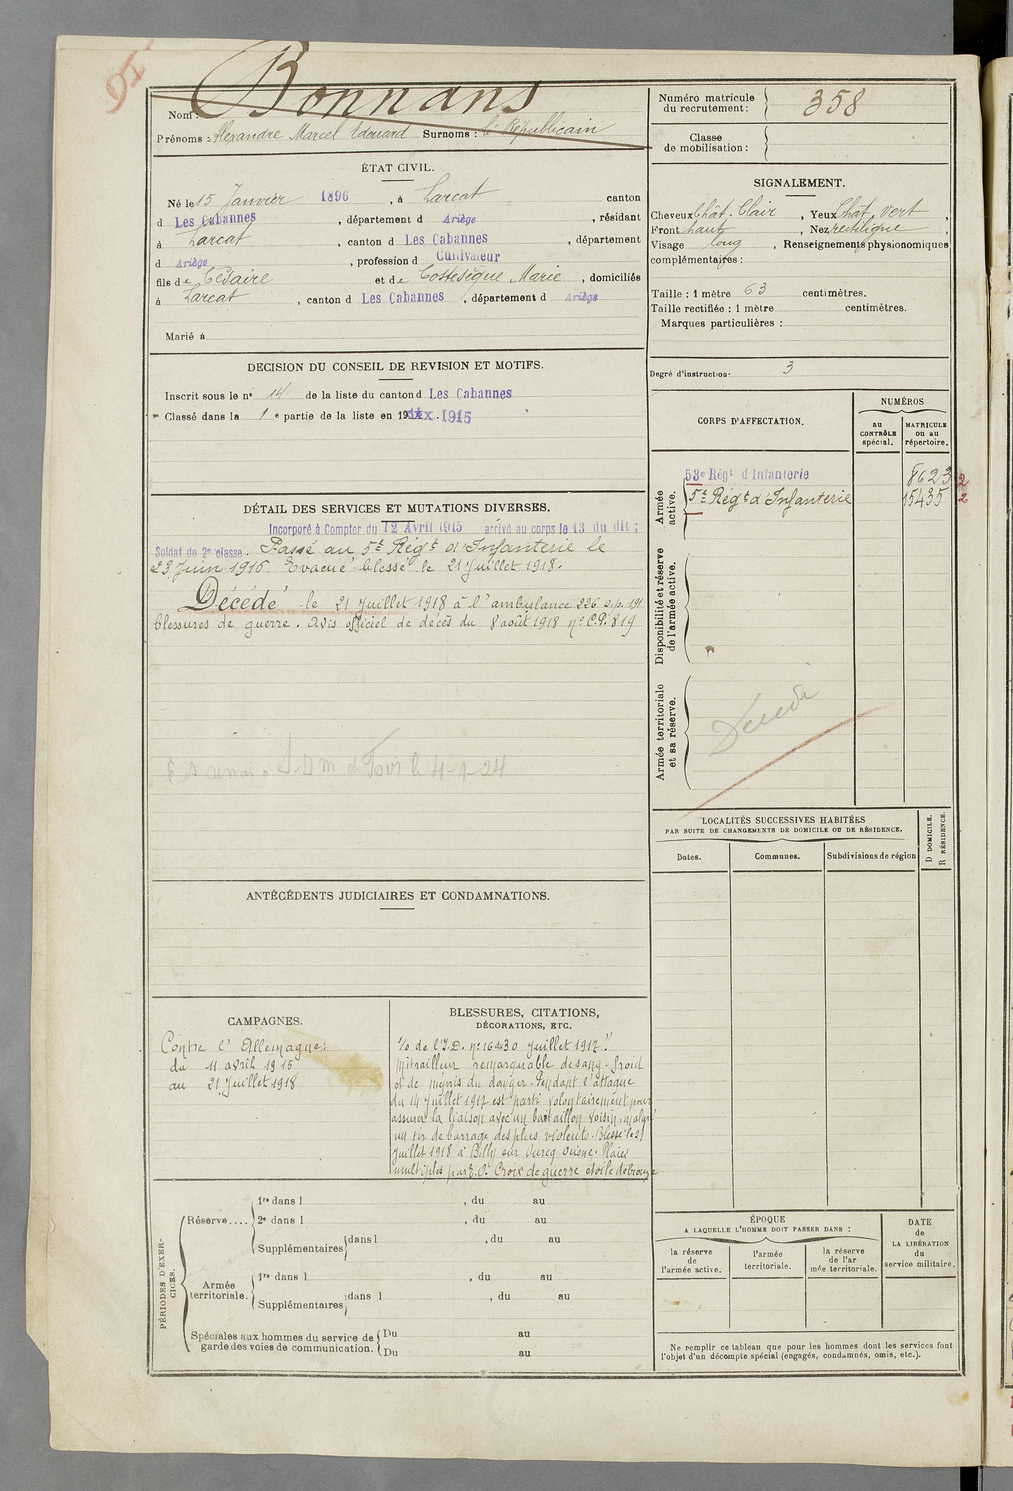 95
Bonnans
Nom :
Prénoms : Alexandre Marcel Edouard Surnoms : le Républicain
Numéro matricule du recrutement : 358
Classe de mobilisation :
ÉTAT CIVIL.
Né le 15 Janvier 1896, à Larcat canton
d Les Cabannes, département d Ariège, résidant
à Larcat, canton d Les Cabannes, département
d Ariège, profession d Cultivateur
fils de Césaire et de Costesèque Marie, domiciliés
à Larcat, canton d Les Cabannes, département d Ariège
Marié à
SIGNALEMENT.
Cheveux Chât. Clair, Yeux Chât. vert,
Front haut, Nez rectiligne,
Visage long, Renseignements physionomiques
complémentaires :
Taille : 1 mètre 63 centimètres.
Taille rectifiée : 1 mètre centimètres.
Marques particulières :
Degré d'instruction. 3
DECISION DU CONSEIL DE REVISION ET MOTIFS.
Inscrit sous le n° 14 de la liste du canton d Les Cabannes
Classé dans la 1 e partie de la liste en 19 1915
CORPS D'AFFECTATION.
NUMÉROS
au CONTRÔLE spécial.
MATRICULE ou au répertoire.
Armée active.
53e Régt d'Infanterie 8623 2
5e Régt d'Infanterie 15435 2
Disponibilité et réserve de l'armée active.
Armée territoriale et sa réserve.
Décédé
DÉTAIL DES SERVICES ET MUTATIONS DIVERSES.
Incorporé à Compter du 12 Avril 1915 arrivé au corps le 13 du dit ;
Soldat de 2e classe. Passé au 5e Régt d'Infanterie le
23 Juin 1916. Evacué blessé le 21 Juillet 1918.
Décédé le 21 Juillet 1918 à l'ambulance 226 s.p. 191
blessures de guerre. Avis officiel de décès du 8 août 1918 n° C.P. 819
le 4-1-24
LOCALITÉS SUCCESSIVES HABITÉES
PAR SUITE DE CHANGEMENTS DE DOMICILE OU DE RÉSIDENCE.
Dates.
Communes.
Subdivisions de région
D DOMICILE.
R RÉSIDENCE.
ANTÉCÉDENTS JUDICIAIRES ET CONDAMNATIONS.
CAMPAGNES.
Contre l'Allemagne :
du 11 avril 1915
au 21 Juillet 1918
BLESSURES, CITATIONS,
DÉCORATIONS, ETC.
%o de l'I.D. n° 16 du 30 Juillet 1917 "
Mitrailleur remarquable de sang-froid
et de mépris du danger. Pendant l'attaque
du 14 Juillet 1917 est parti volontairement pour
assurer la liaison avec un bataillon voisin, malgré
un tir de barrage des plus violents. Blessé le 21
Juillet 1918 à Billy sur Ourcq Aisne. Plaies
multiples par E.O. Croix de guerre étoile de bronze
PÉRIODES D'EXERCICES.
Réserve....
1re dans l , du au
2e dans l , du au
Supplémentaires dans l , du au
Armée territoriale.
1re dans l , du au
Supplémentaires dans l , du au
Spéciales aux hommes du service de
garde des voies de communication.
Du au
Du au
ÉPOQUE
A LAQUELLE L'HOMME DOIT PASSER DANS :
la réserve de l'armée active.
l'armée territoriale.
la réserve de l'armée territoriale.
DATE de LA LIBÉRATION du service militaire.
Ne remplir ce tableau que pour les hommes dont les services font
l'objet d'un décompte spécial (engagés, condamnés, omis, etc.).